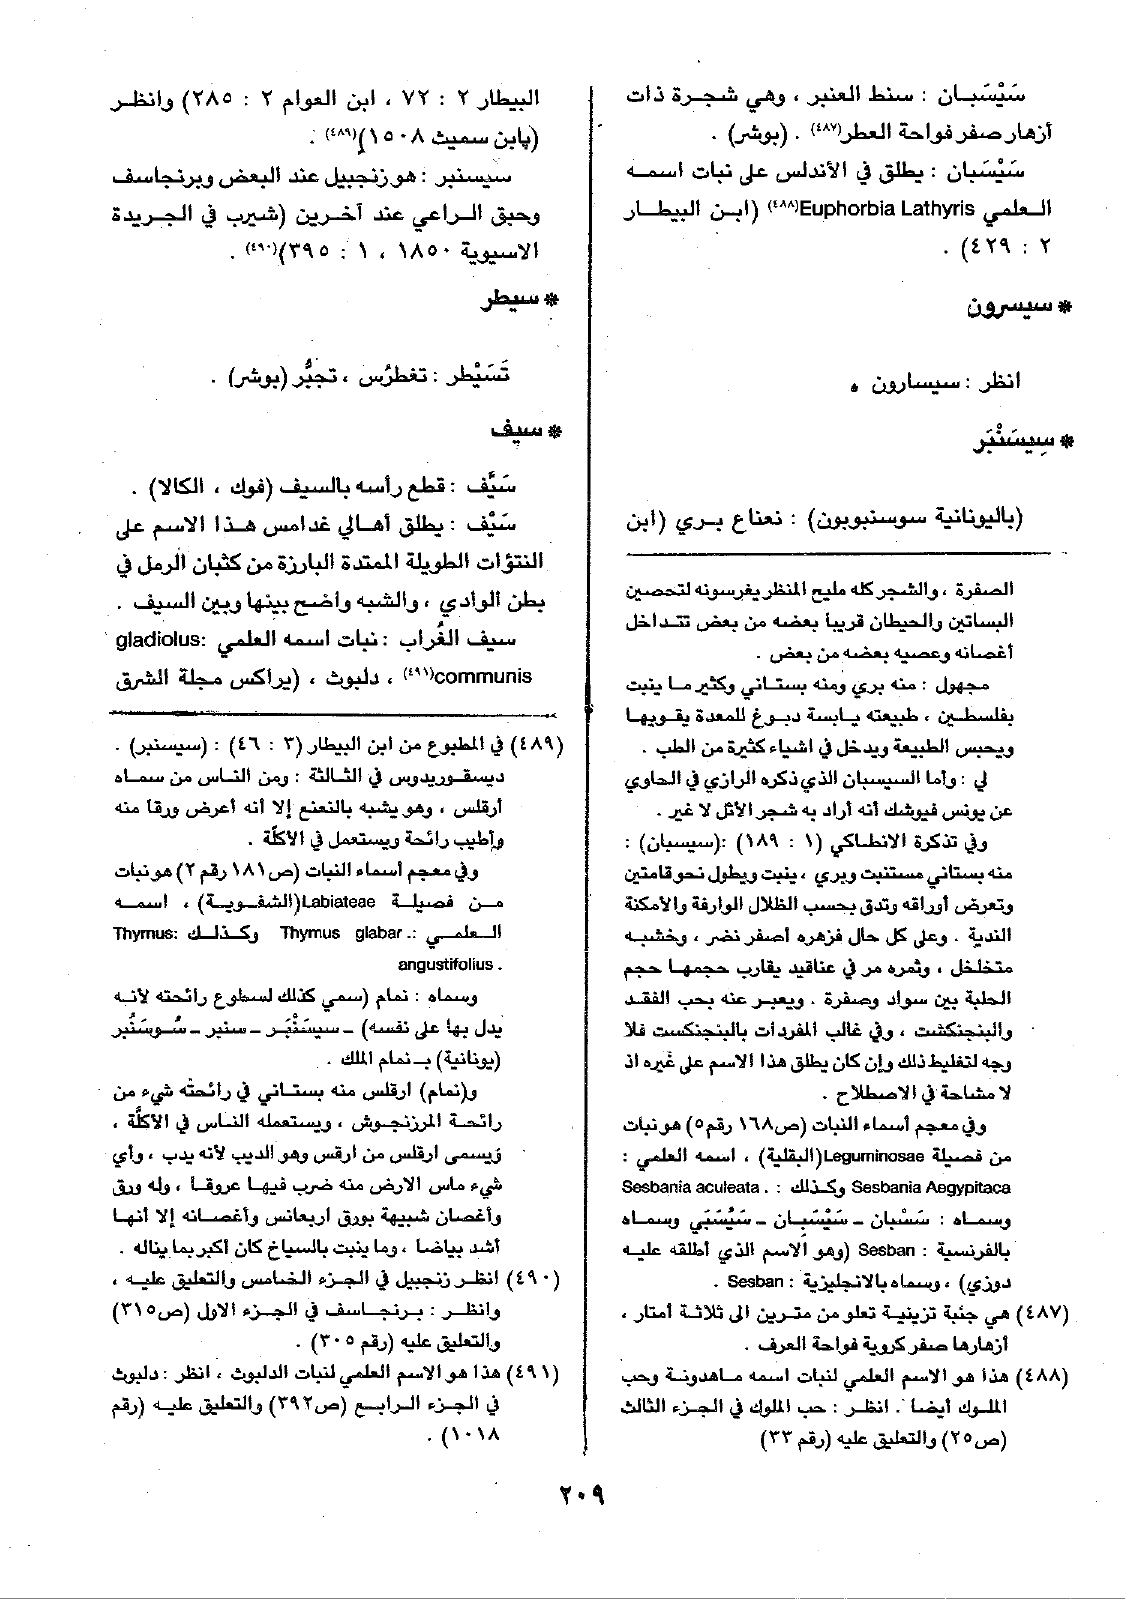 سَيْسَبان : سنط العنبر ، وهي شجرة ذات
أزهار صفر فواحة العطر(٤٨٧) . (بوشر) .
سَيْسَبان : يطلق في الأندلس على نبات اسمه
العلمي Euphorbia Lathyris(٤٨٨) (ابن البيطار
٢ : ٤٢٩) .
* سيسرون
انظر : سيسارون *
* سِيسَنْبَر
(باليونانية سوسنبوبون) : نعناع بري (ابن
الصفرة ، والشجر كله مليح المنظر يغرسونه لتحصين
البساتين والحيطان قريباً بعضه من بعض تتداخل
أغصانه وعصيه بعضه من بعض .
مجهول : منه بري ومنه بستاني وكثير ما ينبت
بفلسطين ، طبيعته يابسة دبوغ للمعدة يقويها
ويحبس الطبيعة ويدخل في اشياء كثيرة من الطب .
لي : وأما السيسبان الذي ذكره الرازي في الحاوي
عن يونس فيوشك أنه أراد به شجر الأثل لا غير .
وفي تذكرة الانطاكي (١ : ١٨٩) :(سيسبان) :
منه بستاني مستنبت وبري ، ينبت ويطول نحو قامتين
وتعرض أوراقه وتدق بحسب الظلال الوارفة والأمكنة
الندية . وعلى كل حال فزهره أصفر نضر ، وخشبه
متخلخل ، وثمره مر في عناقيد يقارب حجمها حجم
الحلبة بين سواد وصفرة . ويعبر عنه بحب الفقد
والبنجنكشت ، وفي غالب المفردات بالبنجنكست فلا
وجه لتغليط ذلك وإن كان يطلق هذا الاسم على غيره اذ
لا مشاحة في الاصطلاح .
وفي معجم أسماء النبات (ص١٦٨ رقم٥) هو نبات
من فصيلة Leguminosae(البقلية) ، اسمه العلمي :
Sesbania Aegypitaca وكذلك : Sesbania aculeata .
وسماه : سَسْبان - سَيْسَبان - سَيْسَبي وسماه
بالفرنسية : Sesban (وهو الأسم الذي أطلقه عليه
دوزي) ، وسماه بالانجليزية : Sesban .
(٤٨٧) هي جنبة تزينية تعلو من مترين الى ثلاثة أمتار ،
أزهارها صفر كروية فواحة العرف .
(٤٨٨) هذا هو الاسم العلمي لنبات اسمه ماهدونة وحب
الملوك أيضا . انظر : حب الملوك في الجزء الثالث
(ص٢٥) والتعليق عليه (رقم ٣٣)
البيطار ٢ : ٧٢ ، ابن العوام ٢ : ٢٨٥) وانظر
(پابن سميث ١٥٠٨)(٤٨٩) .
سيسنبر : هو زنجبيل عند البعض وبرنجاسف
وحبق الراعي عند آخرين (شيرب في الجريدة
الاسيوية ١٨٥٠ ، ١ : ٣٩٥)(٤٩٠) .
* سيطر
تَسَيْطر : تغطرُس ، تجبُّر (بوشر) .
* سيف
سَيَّف : قطع رأسه بالسيف (فوك ، الكالا) .
سَيْف : يطلق أهالي غدامس هذا الاسم على
النتؤات الطويلة الممتدة البارزة من كثبان الرمل في
بطن الوادي ، والشبه واضح بينها وبين السيف .
سيف الغُراب : نبات اسمه العلمي :gladiolus
communis(٤٩١) ، دلبوث ، (براكس مجلة الشرق
(٤٨٩) في المطبوع من ابن البيطار (٣ : ٤٦) : (سيسنبر) .
ديسقوريدوس في الثالثة : ومن الناس من سماه
أرقلس ، وهو يشبه بالنعنع إلا أنه أعرض ورقا منه
وأطيب رائحة ويستعمل في الأكلّة .
وفي معجم أسماء النبات (ص١٨١ رقم ٢) هو نبات
من فصيلة Labiateae(الشفوية) ، اسمه
العلمي :. Thymus glabar وكذلك :Thymus
angustifolius .
وسماه : نمام (سمي كذلك لسطوع رائحته لأنه
يدل بها على نفسه) - سيسَنْبَر - سنبر - سُوسَنُبر
(يونانية) - نمام الملك .
و(نمام) ارقلس منه بستاني في رائحته شيء من
رائحة المرزنجوش ، ويستعمله الناس في الأكلّة ،
ويسمى ارقلس من ارقس وهو الدبيب لأنه يدب ، وأي
شيء ماس الارض منه ضرب فيها عروقا ، وله ورق
وأغصان شبيهة بورق اريعانس وأغصانه إلا أنها
أشد بياضا ، وما ينبت بالسياخ كان أكبر بما يناله .
(٤٩٠) انظر زنجبيل في الجزء الخامس والتعليق عليه ،
وانظر : برنجاسف في الجزء الاول (ص٣١٥)
والتعليق عليه (رقم ٣٠٥) .
(٤٩١) هذا هو الاسم العلمي لنبات الدلبوث ، انظر : دلبوث
في الجزء الرابع (ص٣٩٢) والتعليق عليه (رقم
١٠١٨) .
٢٠٩